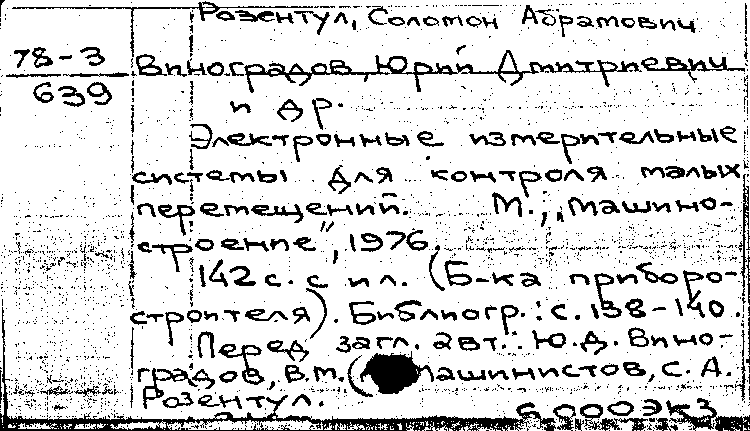 Розентул, Соломон Абрамович
78-3
639
Виноградов, Юрий Дмитриевич
и др.
Электронные измерительные
системы для контроля малых
перемещений. М., "Машино-
строение", 1976.
142 с. с ил. (Б-ка приборо-
строителя). Библиогр.: с. 138-140.
Перед загл. авт.: Ю.Д. Вино-
градов, В.М. Машинистов, С.А.
Розентул.
6.000экз